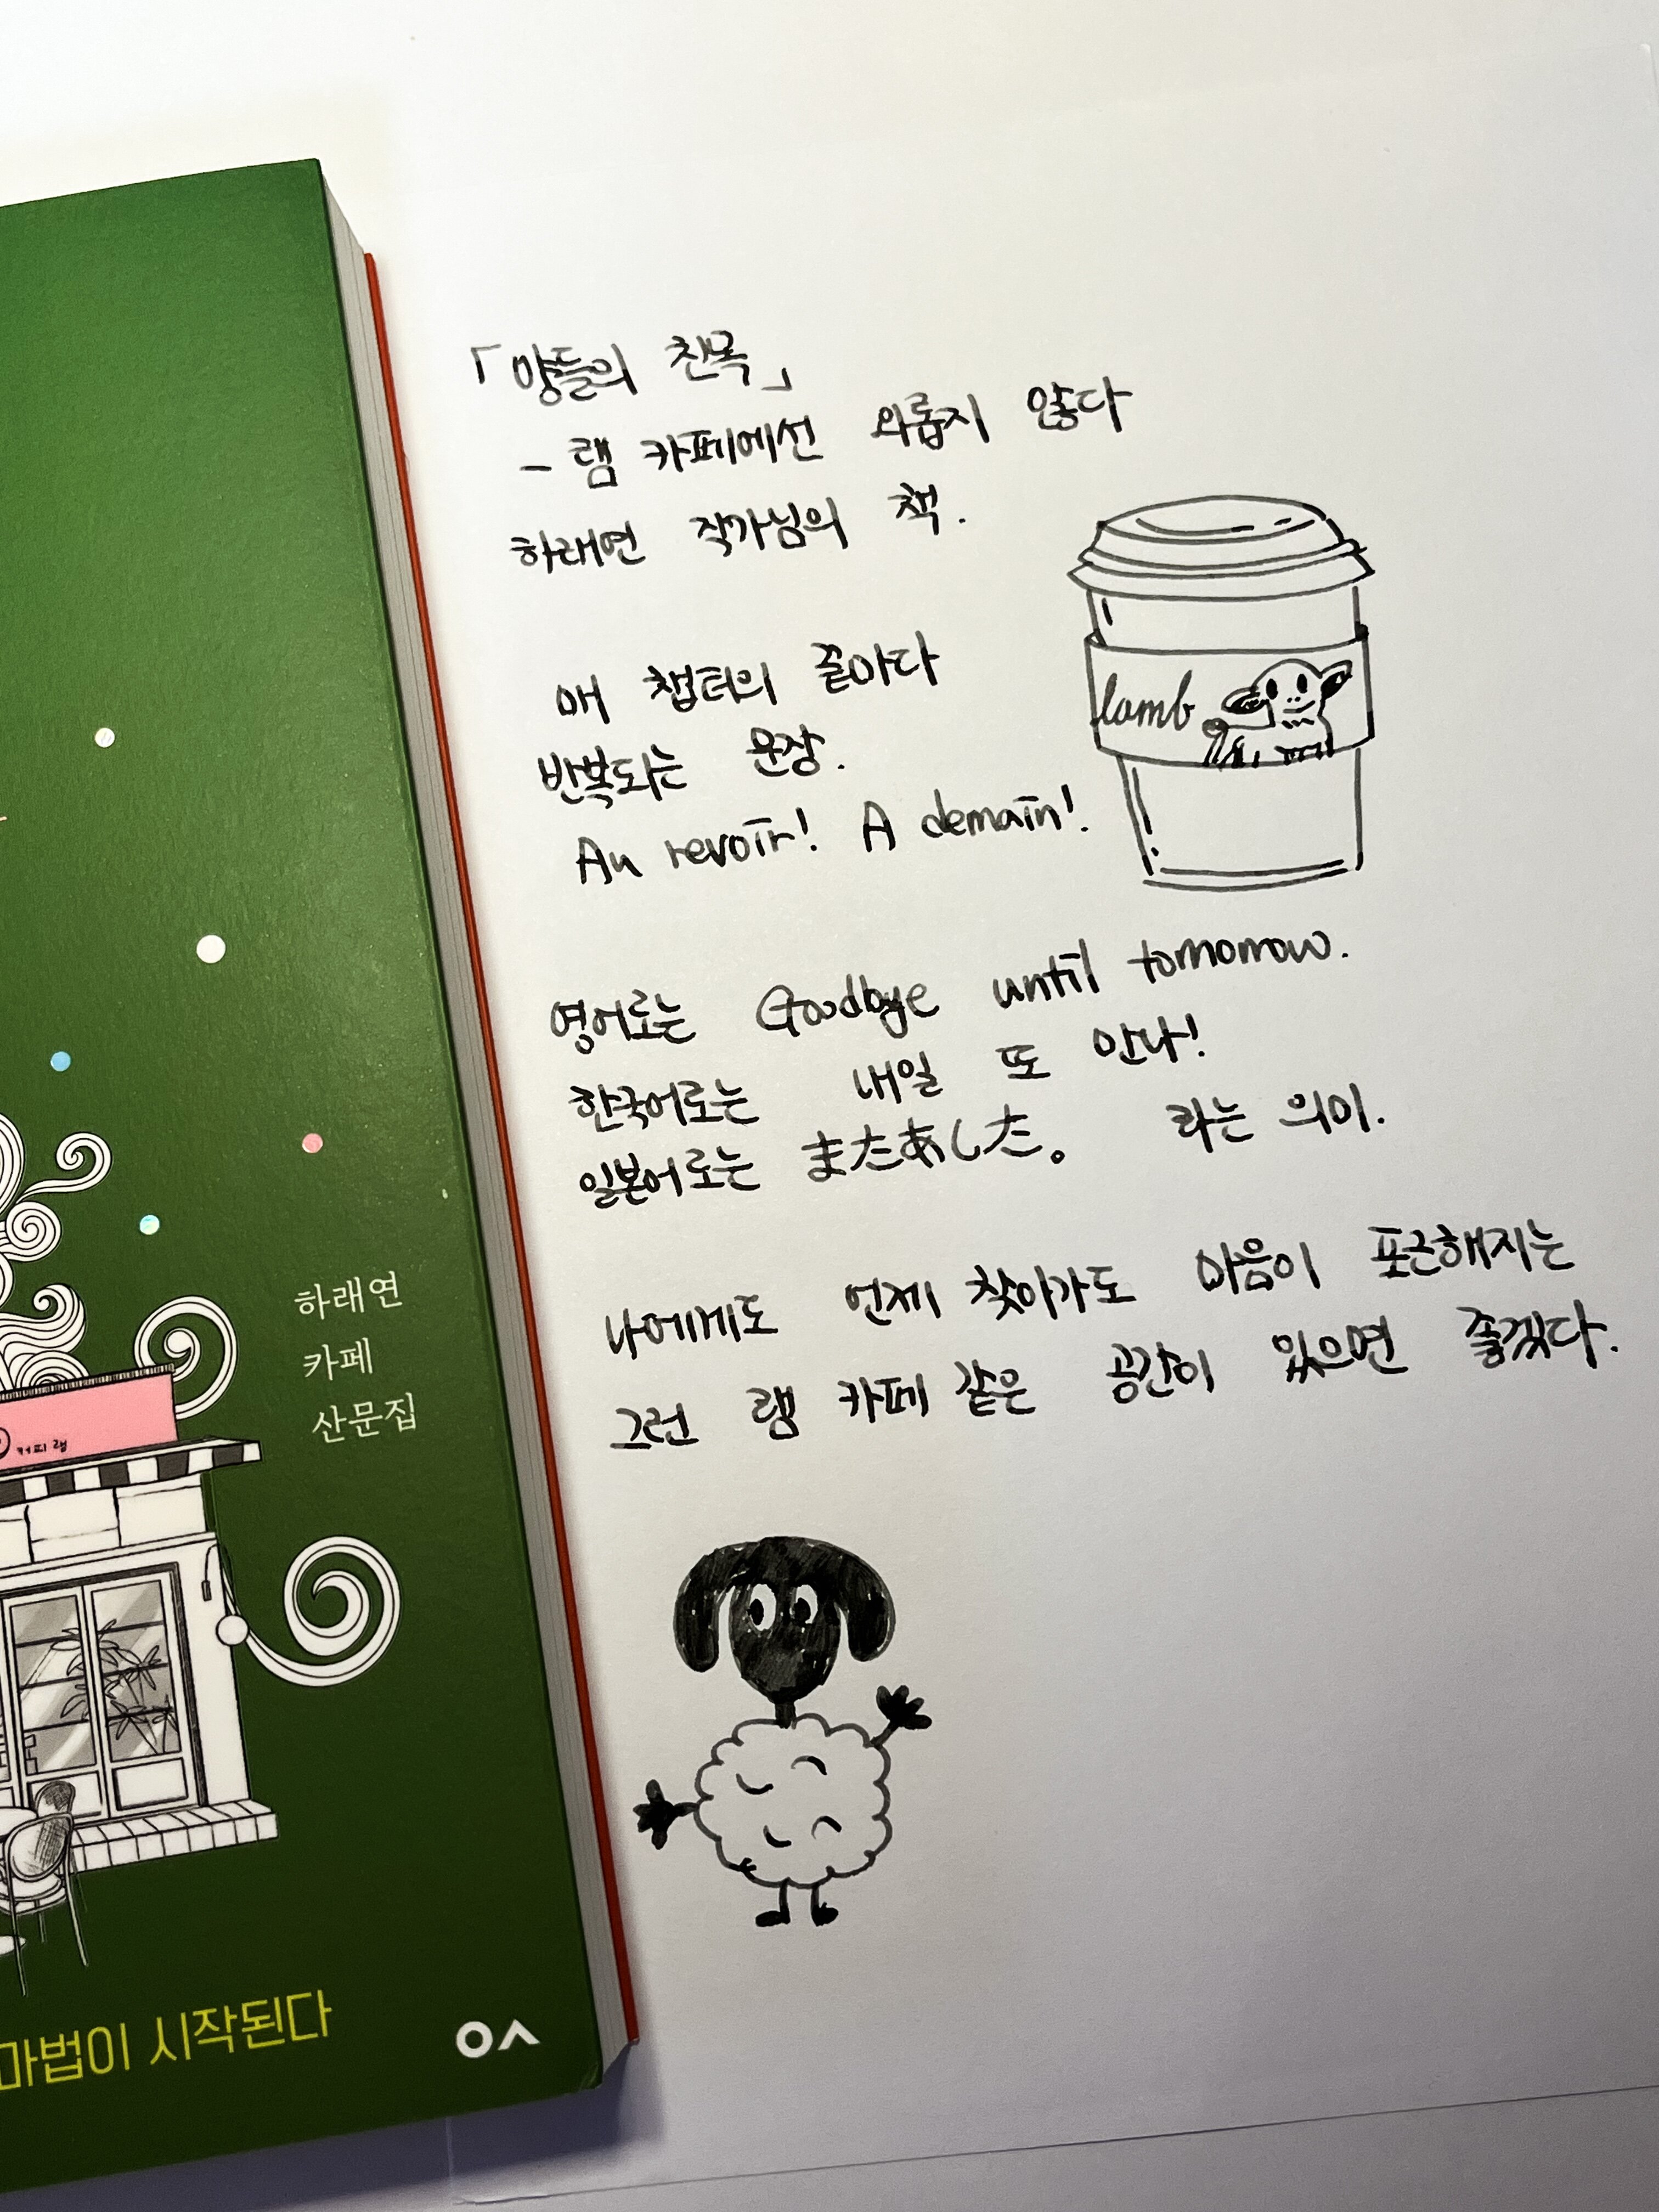 「양들의 친목」
- 램 카페에선 외롭지 않다
하래연 작가님의 책.
lamb
매 챕터의 끝마다
반복되는 문장.
Au revoir! A demain!
영어로는 Goodbye until tomorrow.
한국어로는 내일 또 만나!
일본어로는 またあした。 라는 의미.
나에게도 언제 찾아가도 마음이 포근해지는
그런 램 카페 같은 공간이 있으면 좋겠다.
하래연
카페
산문집
커피 램
마법이 시작된다